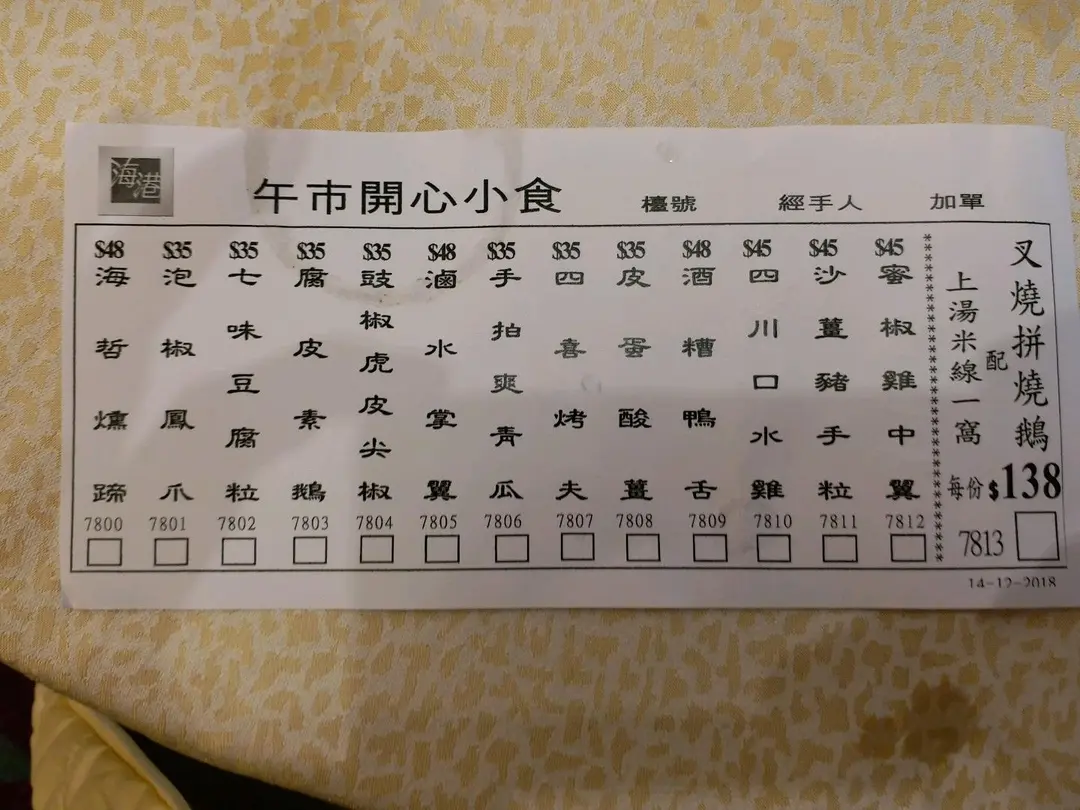 海港
午市開心小食 檯號 經手人 加單
$48 海哲燻蹄 7800
$35 泡椒鳳爪 7801
$35 七味豆腐粒 7802
$35 腐皮素鵝 7803
$35 豉椒虎皮尖椒 7804
$48 滷水掌翼 7805
$35 手拍爽青瓜 7806
$35 四喜烤夫 7807
$35 皮蛋酸薑 7808
$48 酒糟鴨舌 7809
$45 四川口水雞 7810
$45 沙薑豬手粒 7811
$45 蜜椒雞中翼 7812
叉燒拼燒鵝
配
上湯米線一窩
每份$138
7813
14-12-2018